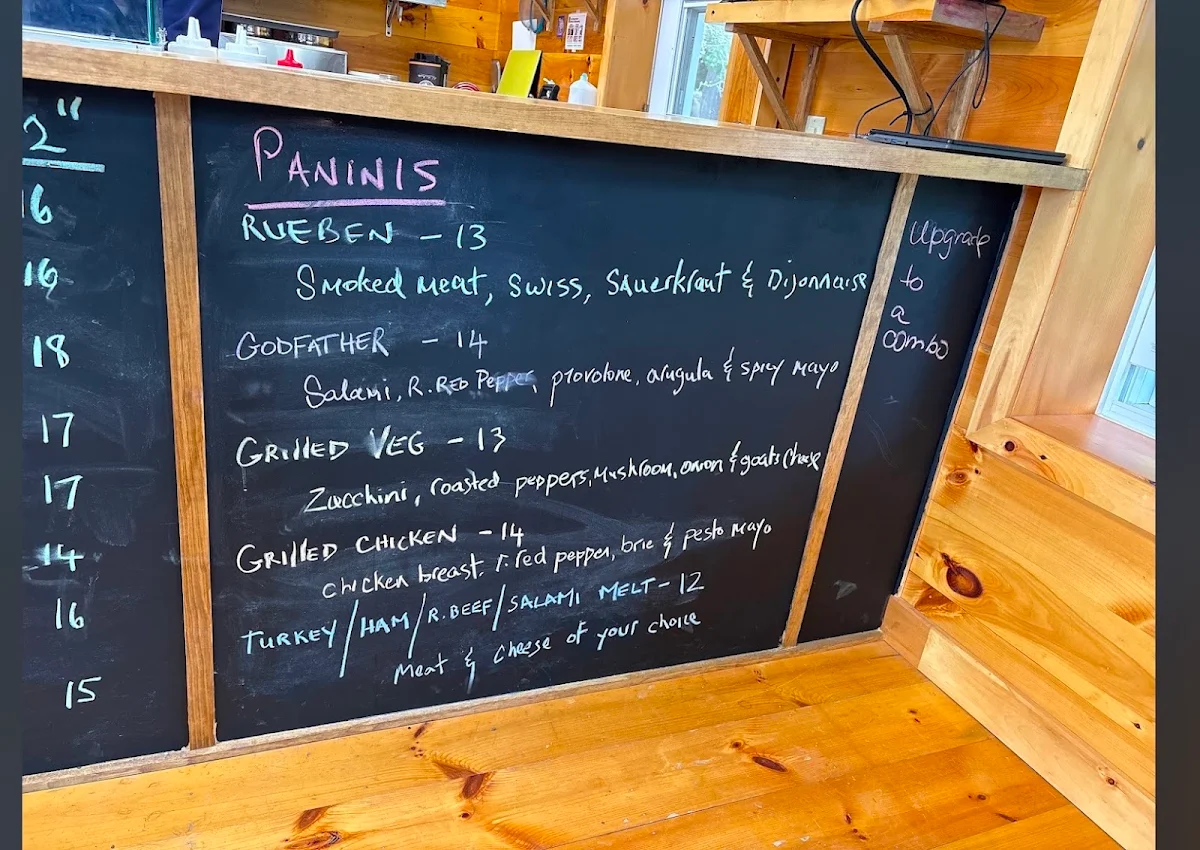 2"
16
16
18
17
17
14
16
15
PANINIS
RUEBEN - 13
Smoked meat, swiss, Sauerkraut & Dijonnaise
GODFATHER - 14
Salami, R. RED Pepper, provolone, arugula & spicy mayo
GRIllED VEG - 13
Zucchini, roasted peppers, Mushroom, onion & goats cheese
GRIllED CHICKEN - 14
chicken breast, r. red pepper, brie & pesto mayo
TURKEY/HAM/R.BEEF/SALAMI MELT - 12
Meat & cheese of your choice
Upgrade
to
a
combo